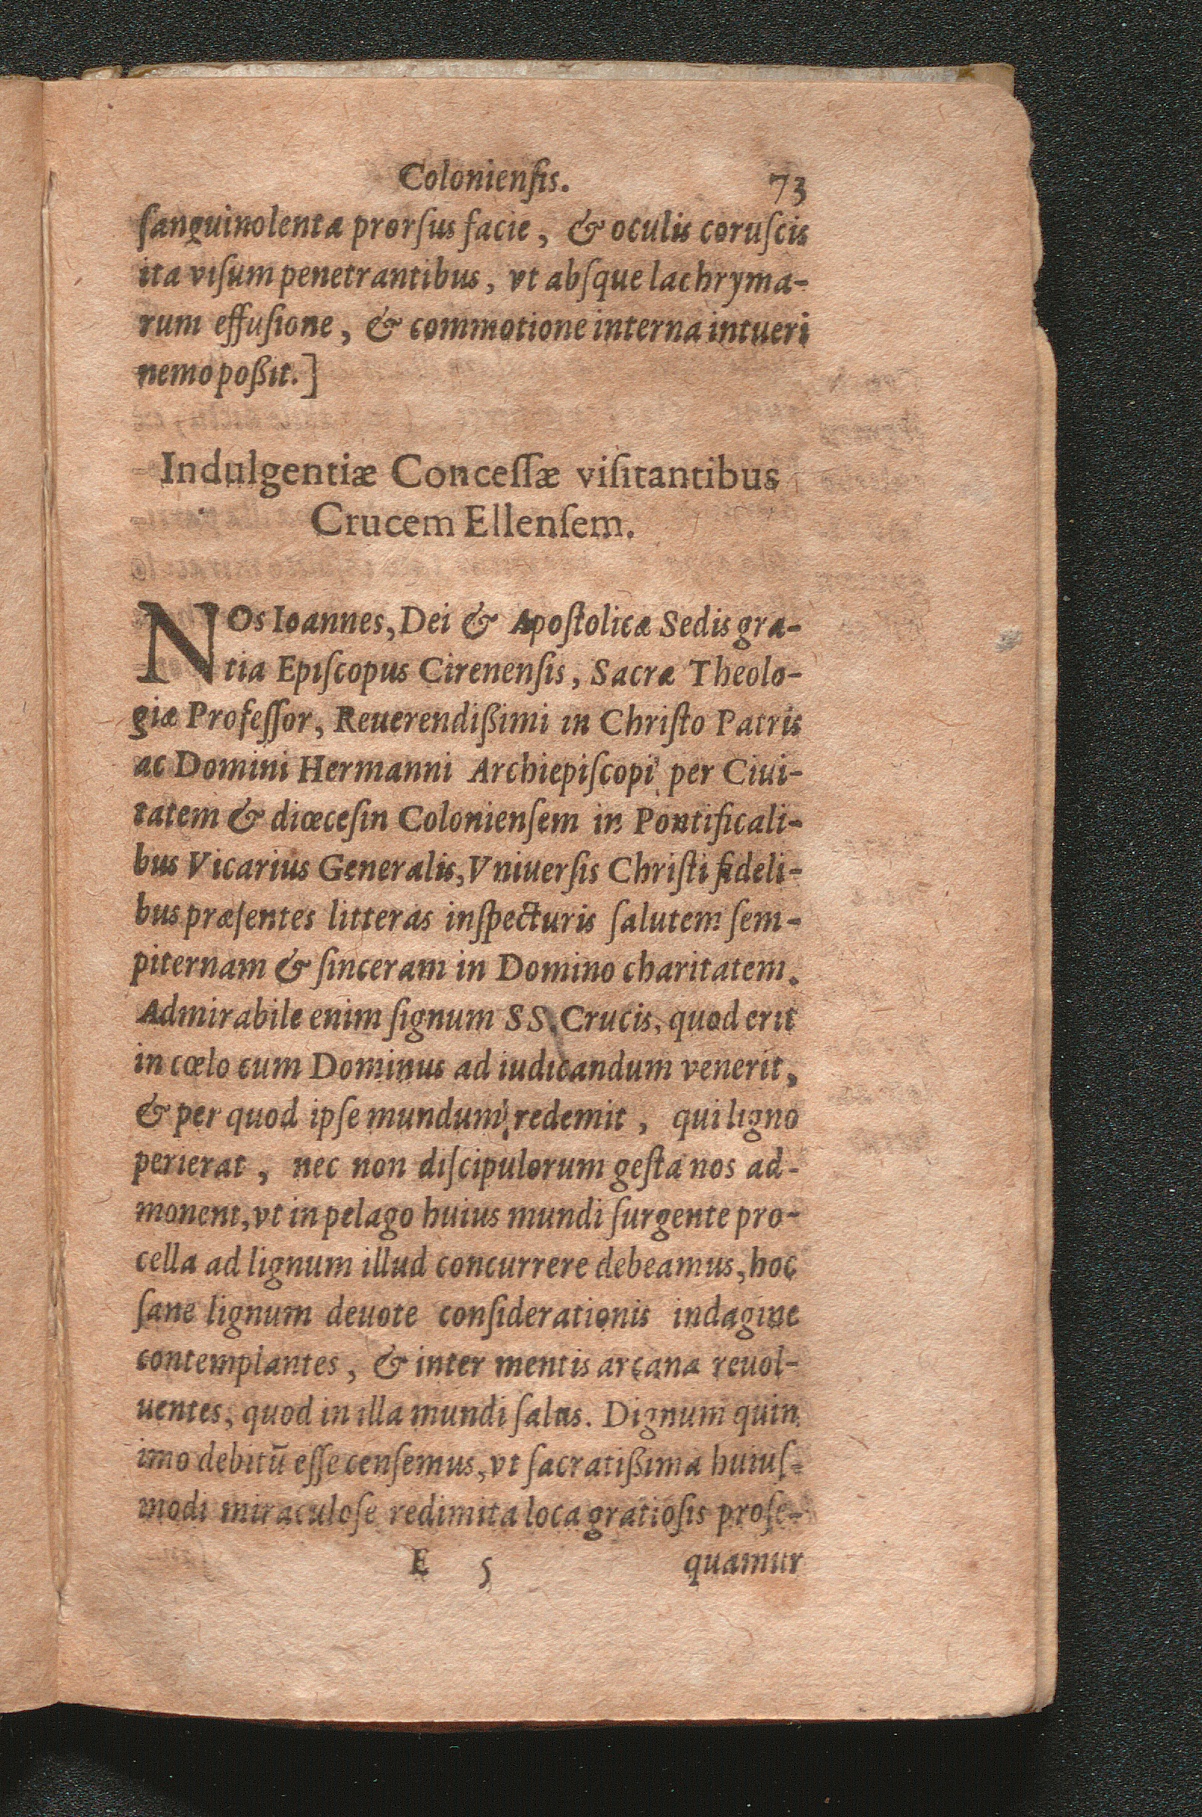 Colonienſis. 73
ſanguinolenta prorſus facie, & oculis coruſcis
ita viſum penetrantibus, vt abſque lachryma-
rum effuſione, & commotione interna intueri
nemo poßit.]
Indulgentiæ Conceſſæ viſitantibus
Crucem Ellenſem.
NOs Ioannes, Dei & Apoſtolicæ Sedis gra-
tia Epiſcopus Cirenenſis, Sacræ Theolo-
giæ Profeſſor, Reuerendißimi in Chriſto Patris
ac Domini Hermanni Archiepiſcopi per Ciui-
tatem & diœceſin Colonienſem in Pontificali-
bus Vicarius Generalis, Vniuerſis Chriſti fideli-
bus præſentes litteras inſpecturis ſalutem ſem-
piternam & ſinceram in Domino charitatem.
Admirabile enim ſignum SS. Crucis, quod erit
in cœlo cum Dominus ad iudicandum venerit,
& per quod ipſe mundum redemit, qui ligno
perierat, nec non diſcipulorum geſta nos ad-
monent, vt in pelago huius mundi ſurgente pro-
cella ad lignum illud concurrere debeamus, hoc
ſane lignum deuote conſiderationis indagine
contemplantes, & inter mentis arcana reuol-
uentes, quod in illa mundi ſalus. Dignum quin
imo debitū eſſe cenſemus, vt ſacratißima huiuſ-
modi miraculoſe redimita loca gratioſis proſe-
E 5 quamur